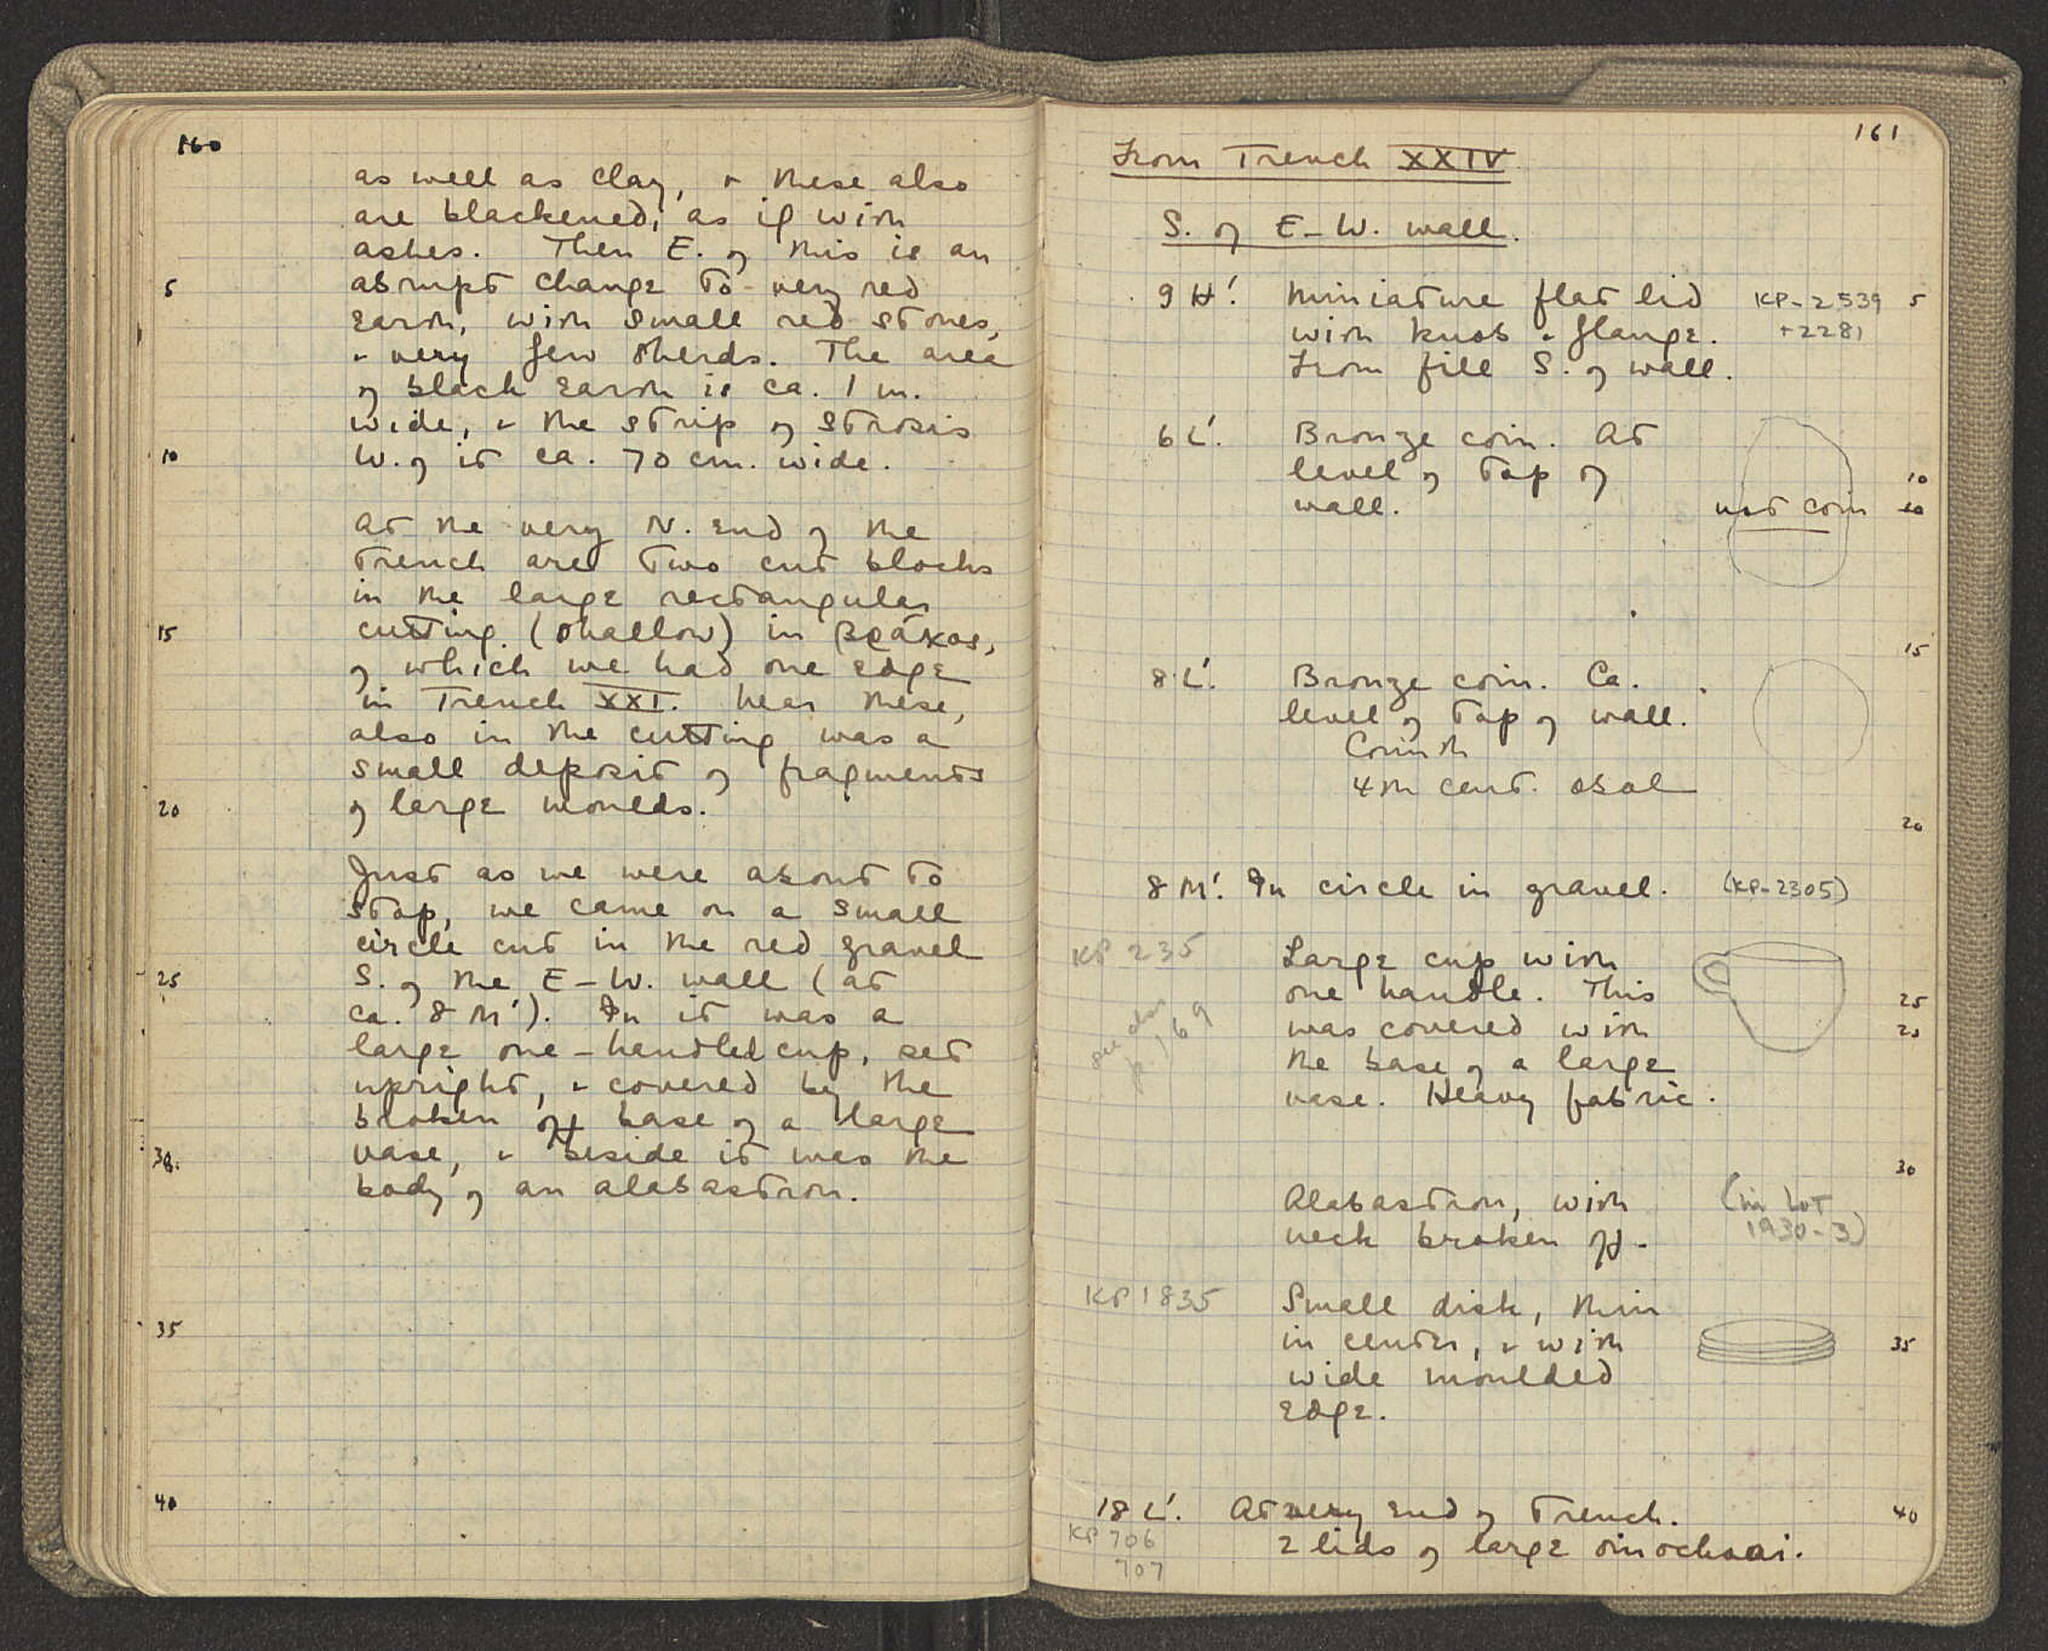 160
as well as clay, + these also
are blackened, as if with
ashes. Then E. of this is an
5 abrupt change to very red
earth, with small red stones,
+ very few sherds. The area
of black earth is ca. 1 m.
wide, + the strip of strosis
10 W. of it ca. 70 cm. wide.
At the very N. end of the
trench are two cut blocks
in the large rectangular
15 cutting (shallow) in βράχος,
of which we had one edge
in Trench XXI. Near these,
also in the cutting was a
small deposit of fragments
20 of large moulds.
Just as we were about to
stop, we came on a small
circle cut in the red gravel
25 S. of the E-W. wall (at
ca. 8 M'). In it was a
large one-handled cup, set
upright, + covered by the
broken off base of a large
30. vase, + beside it was the
body of an alabastron.
35
40
161
From Trench XXIV
S. of E-W. wall.
9 H'. Miniature flat lid KP-2539 5
with knob + flange. +2281
From fill S. of wall.
6 L'. Bronze coin. At
level of top of 10
wall. not coin 10
15
8 L'. Bronze coin. Ca.
level of top of wall.
Corinth
4th cent. obol
20
8 M'. In circle in gravel. (KP-2305)
KP 235 Large cup with
one handle. This 25
see also p. 169 was covered with 25
the base of a large
vase. Heavy fabric.
30
Alabastron, with (in Lot
neck broken off. 1930-3)
KP 1835 Small disk, thin
in center, + with 35
wide moulded
edge.
18 L'. At very end of trench. 40
KP 706 2 lids of large oinochoai.
707